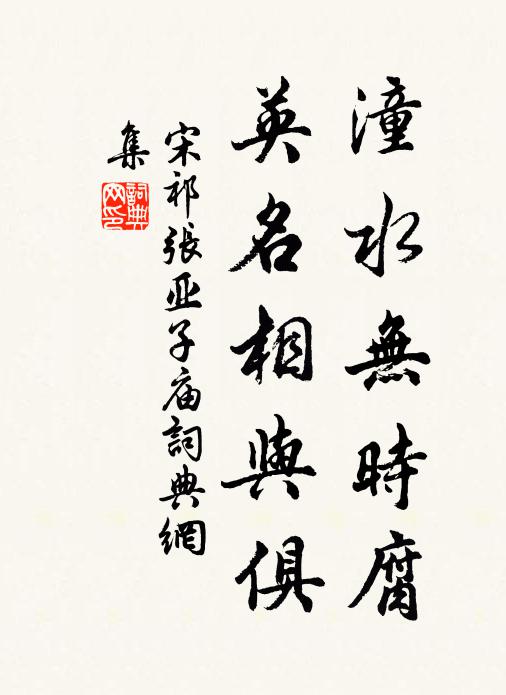 潼水無時腐
英名相與俱
宋祁張亚子庙詞典網
集
詞典网印